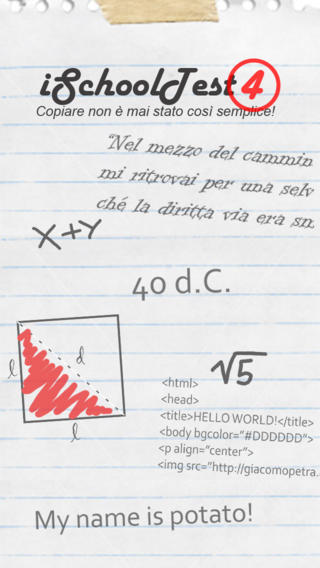 iSchoolTest 4
Copiare non è mai stato così semplice!
"Nel mezzo del cammin
mi ritrovai per una selv
ché la diritta via era sm
X+Y
40 d.C.
l
d
l
√5
<html>
<head>
<title>HELLO WORLD!</title>
<body bgcolor="#DDDDDD">
<p align="center">
<img src="http://giacomopetra..
My name is potato!